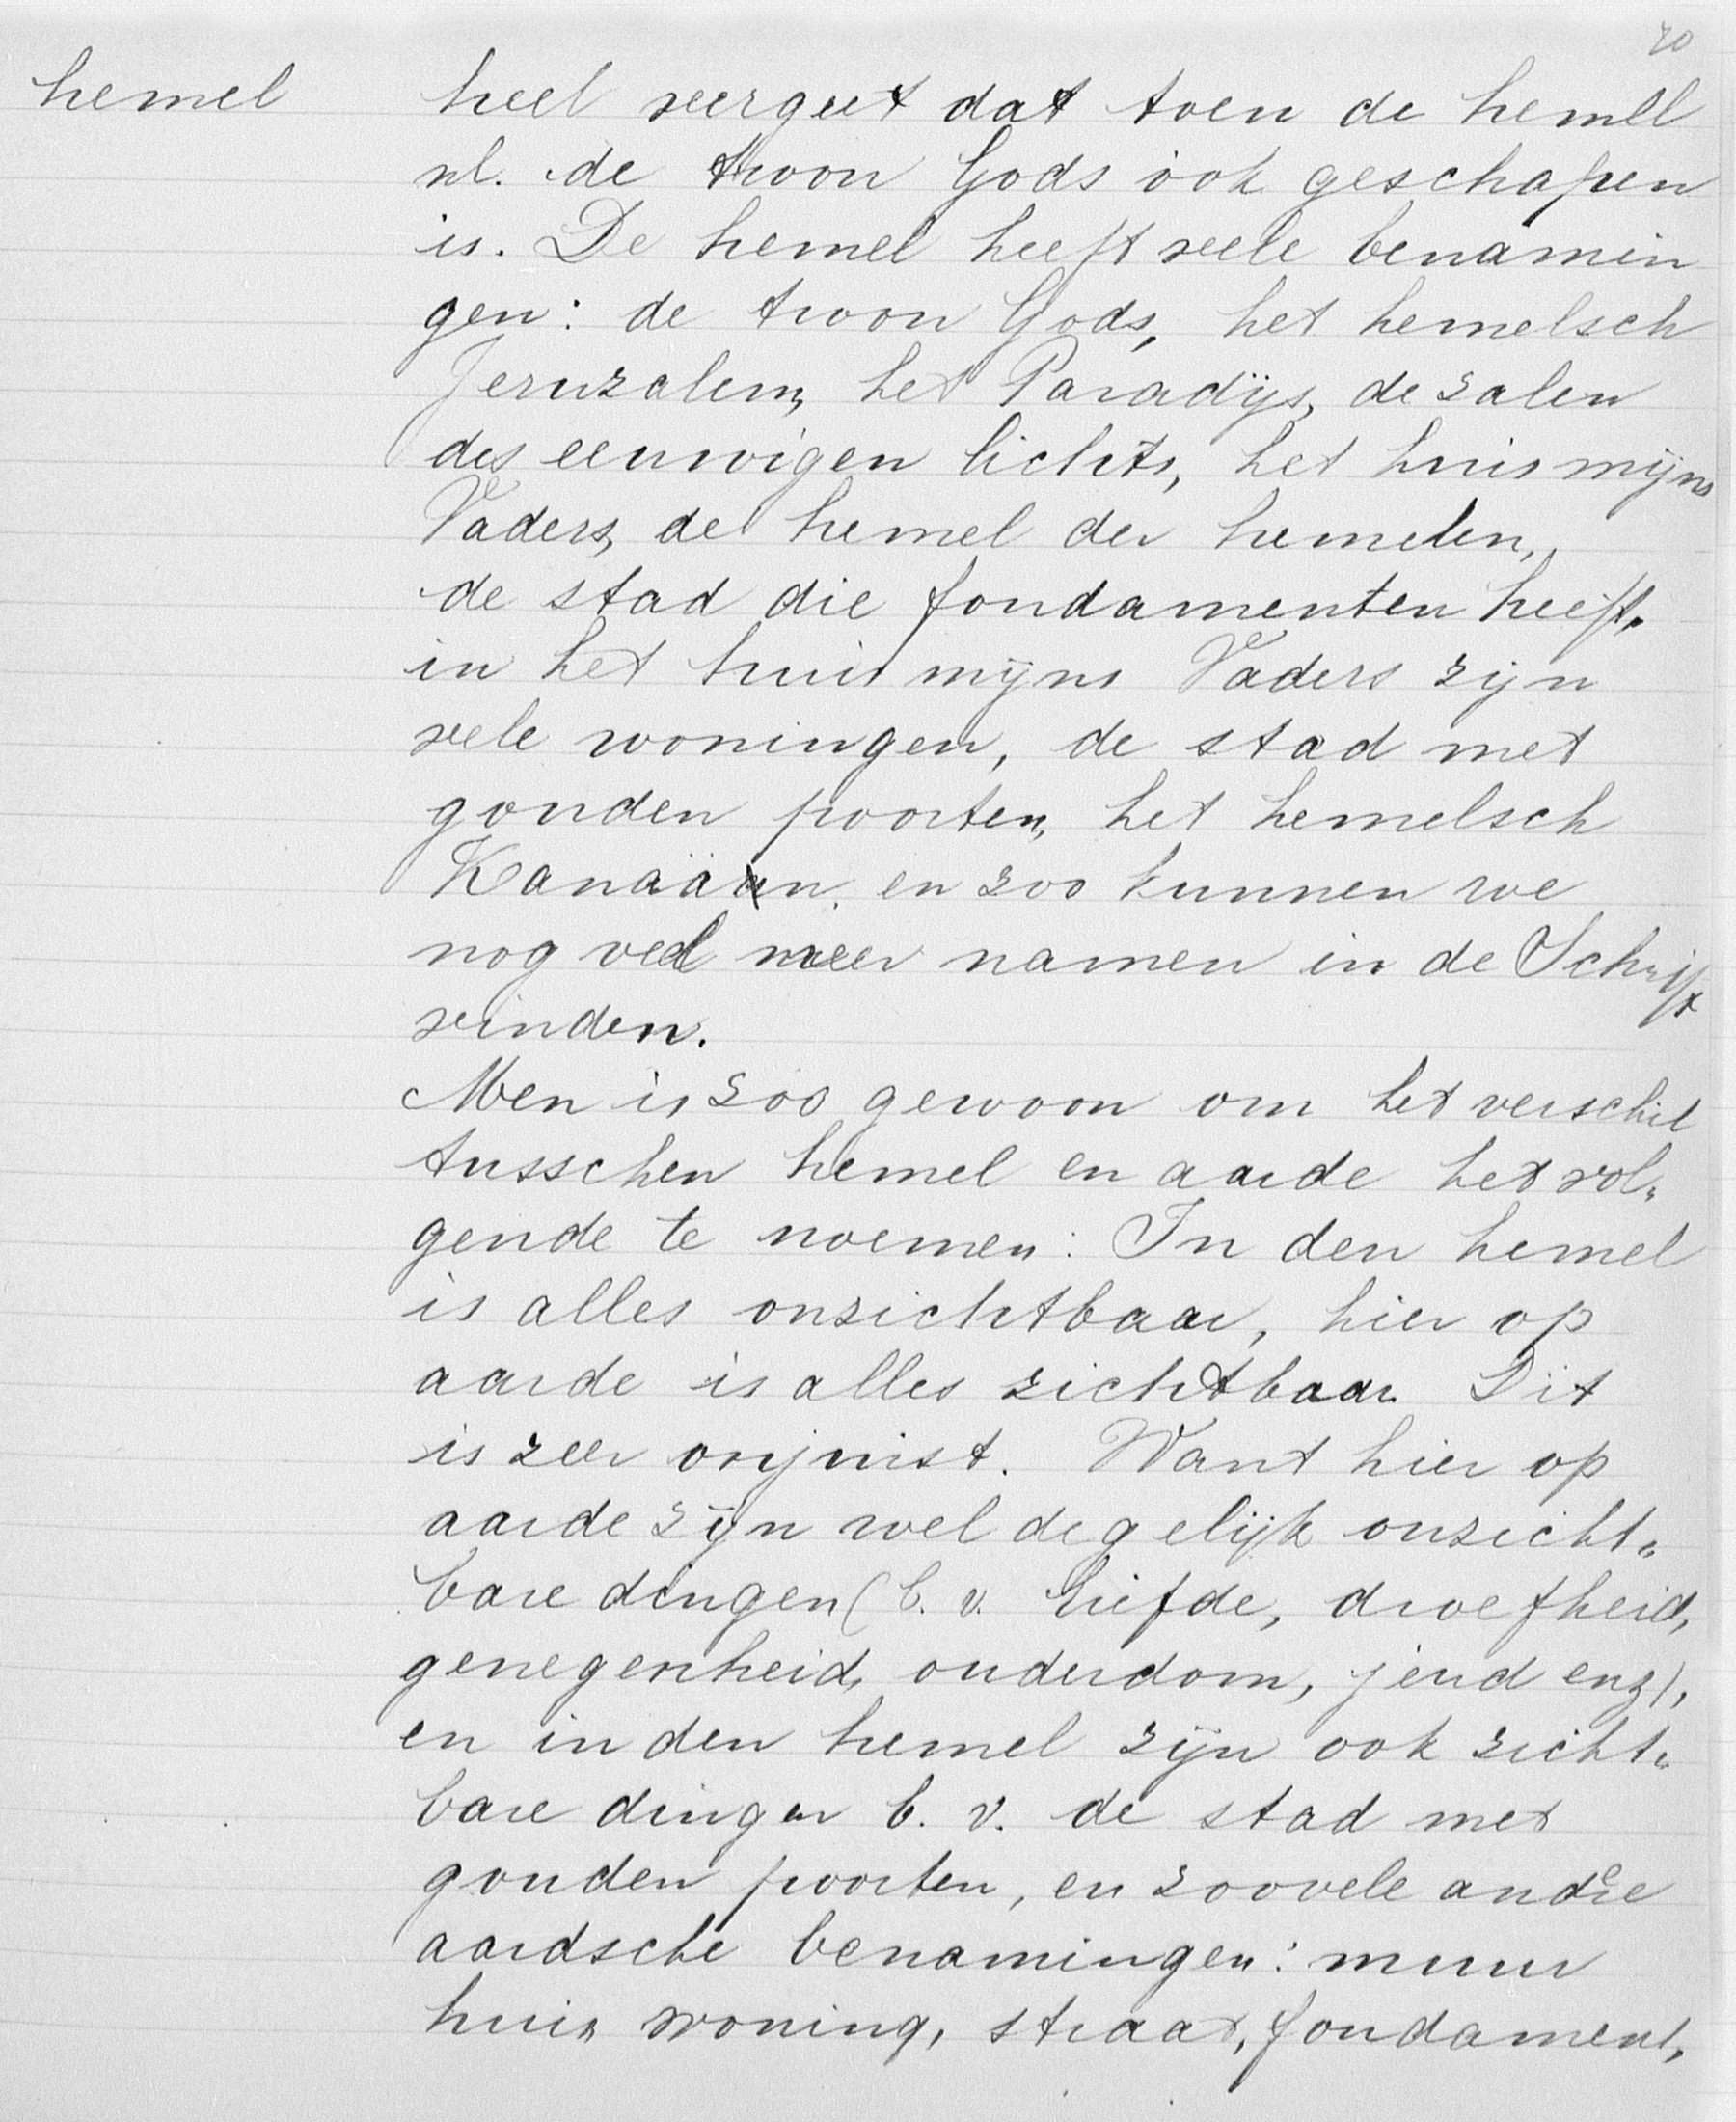 20
hemel
heel vergeet dat toen de hemel
nl. de troon Gods ook geschapen
is. De hemel heeft veele benamin
gen: de troon Gods, het hemelsch
Jeruzalem, het Paradijs, de zalen
des eeuwigen lichts, het huis mijns
Vaders, de hemel der hemelen,
de stad die fondamenten heeft.
in het huis mijns Vaders zijn
vele woningen, de stad met
gouden poorten, het hemelsch
Kanaään, en zoo kunnen we
nog veel meer namen in de Schrift
vinden.
Men is zoo gewoon om het verschil
tusschen hemel en aarde het vol„
gende te noemen: In den hemel
is alles onzichtbaar, hier op
aarde is alles zichtbaar. Dit
is zeer onjuist. Want hier op
aarde zijn wel degelijk onzicht„
bare dingen (b. v. liefde, droefheid,
genegenheid, ouderdom, jeud enz),
en in den hemel zijn ook zicht„
bare dingen b. v. de stad met
gouden poorten, en zoovele andre
aardsche benamingen: muur
huis, woning, straat, fondament,